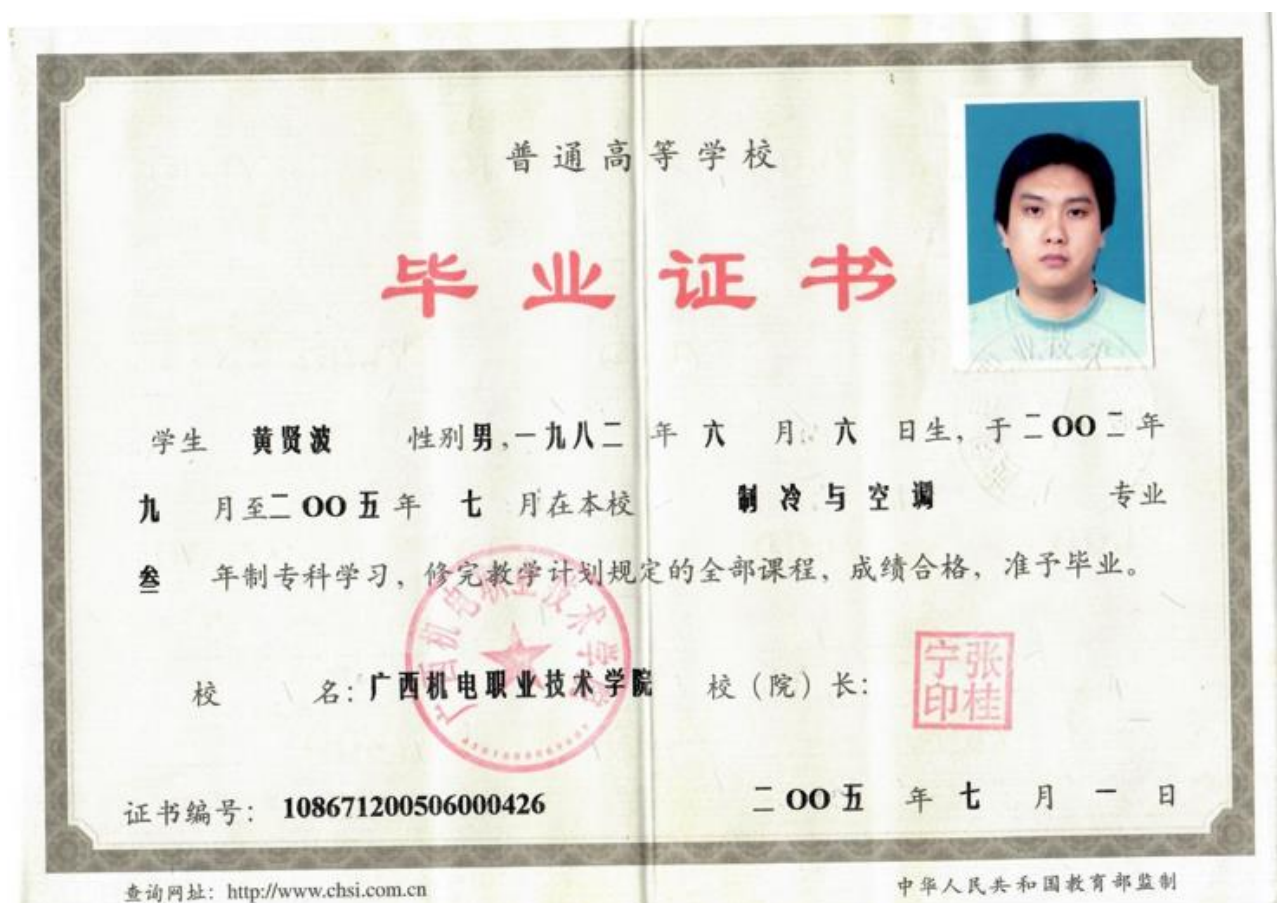 普通高等学校
毕业证书
学生 黄贤波 性别男,一九八二年六月六日生,于二OO二年
九月至二OO五年七月在本校 制冷与空调 专业
叁年制专科学习,修完教学计划规定的全部课程,成绩合格,准予毕业。
广西机电职业技术学院
校名:广西机电职业技术学院 校(院)长:
张桂宁印
证书编号: 108671200506000426 二OO五年七月一日
查询网址: http://www.chsi.com.cn 中华人民共和国教育部监制